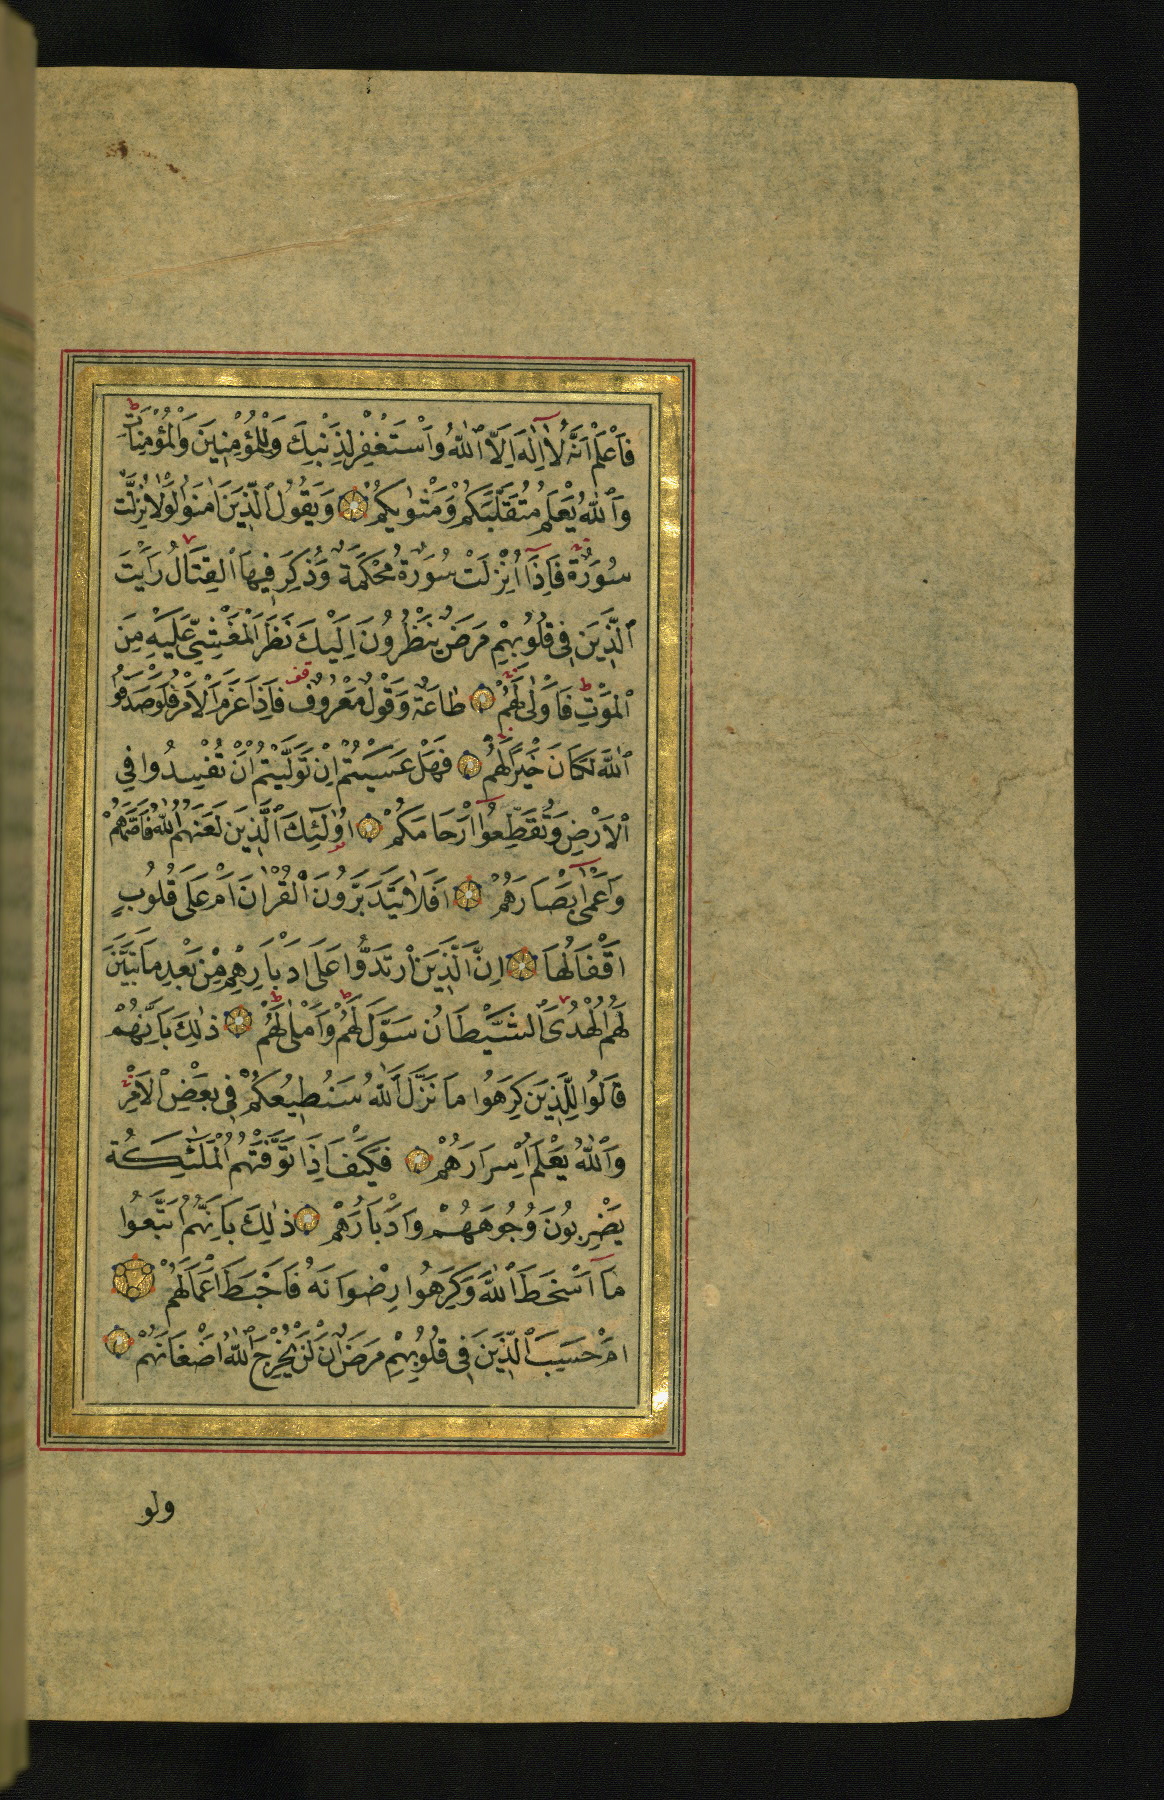 فَاعْلَمْ اَنَّهُ لَٓا اِلٰهَ اِلَّا اللّٰهُ وَاسْتَغْفِرْ لِذَنْبِكَ وَلِلْمُؤْمِنِينَ وَالْمُؤْمِنَاتِ ط
وَاللّٰهُ يَعْلَمُ مُتَقَلَّبَكُمْ وَمَثْوٰيكُمْ وَيَقُولُ الَّذِينَ اٰمَنُوا لَوْلَا نُزِّلَتْ
سُورَةٌ فَاِذَٓا اُنْزِلَتْ سُورَةٌ مُحْكَمَةٌ وَذُكِرَ فِيهَا الْقِتَالُ رَاَيْتَ
الَّذِينَ فِى قُلُوبِهِمْ مَرَضٌ يَنْظُرُونَ اِلَيْكَ نَظَرَ الْمَغْشِىِّ عَلَيْهِ مِنَ
الْمَوْتِ ط فَاَوْلٰى لَهُمْ طَاعَةٌ وَقَوْلٌ مَعْرُوفٌ قف فَاِذَا عَزَمَ الْاَمْرُ فَلَوْ صَدَقُوا
اللّٰهَ لَكَانَ خَيْرًا لَهُمْ فَهَلْ عَسَيْتُمْ اِنْ تَوَلَّيْتُمْ اَنْ تُفْسِدُوا فِى
الْاَرْضِ وَتُقَطِّعُٓوا اَرْحَامَكُمْ اُولٰٓئِكَ الَّذِينَ لَعَنَهُمُ اللّٰهُ فَاَصَمَّهُمْ
وَاَعْمٰٓى اَبْصَارَهُمْ اَفَلَا يَتَدَبَّرُونَ الْقُرْاٰنَ اَمْ عَلٰى قُلُوبٍ
اَقْفَالُهَا اِنَّ الَّذِينَ ارْتَدُّوا عَلٰى اَدْبَارِهِمْ مِنْ بَعْدِ مَا تَبَيَّنَ
لَهُمُ الْهُدَى الشَّيْطَانُ سَوَّلَ لَهُمْ ط وَاَمْلٰى لَهُمْ ط ذٰلِكَ بِاَنَّهُمْ
قَالُوا لِلَّذِينَ كَرِهُوا مَا نَزَّلَ اللّٰهُ سَنُطِيعُكُمْ فِى بَعْضِ الْاَمْرِ
وَاللّٰهُ يَعْلَمُ اِسْرَارَهُمْ فَكَيْفَ اِذَا تَوَفَّتْهُمُ الْمَلٰٓئِكَةُ
يَضْرِبُونَ وُجُوهَهُمْ وَاَدْبَارَهُمْ ذٰلِكَ بِاَنَّهُمُ اتَّبَعُوا
مَٓا اَسْخَطَ اللّٰهَ وَكَرِهُوا رِضْوَانَهُ فَاَحْبَطَ اَعْمَالَهُمْ
اَمْ حَسِبَ الَّذِينَ فِى قُلُوبِهِمْ مَرَضٌ اَنْ لَنْ يُخْرِجَ اللّٰهُ اَضْغَانَهُمْ
ولو